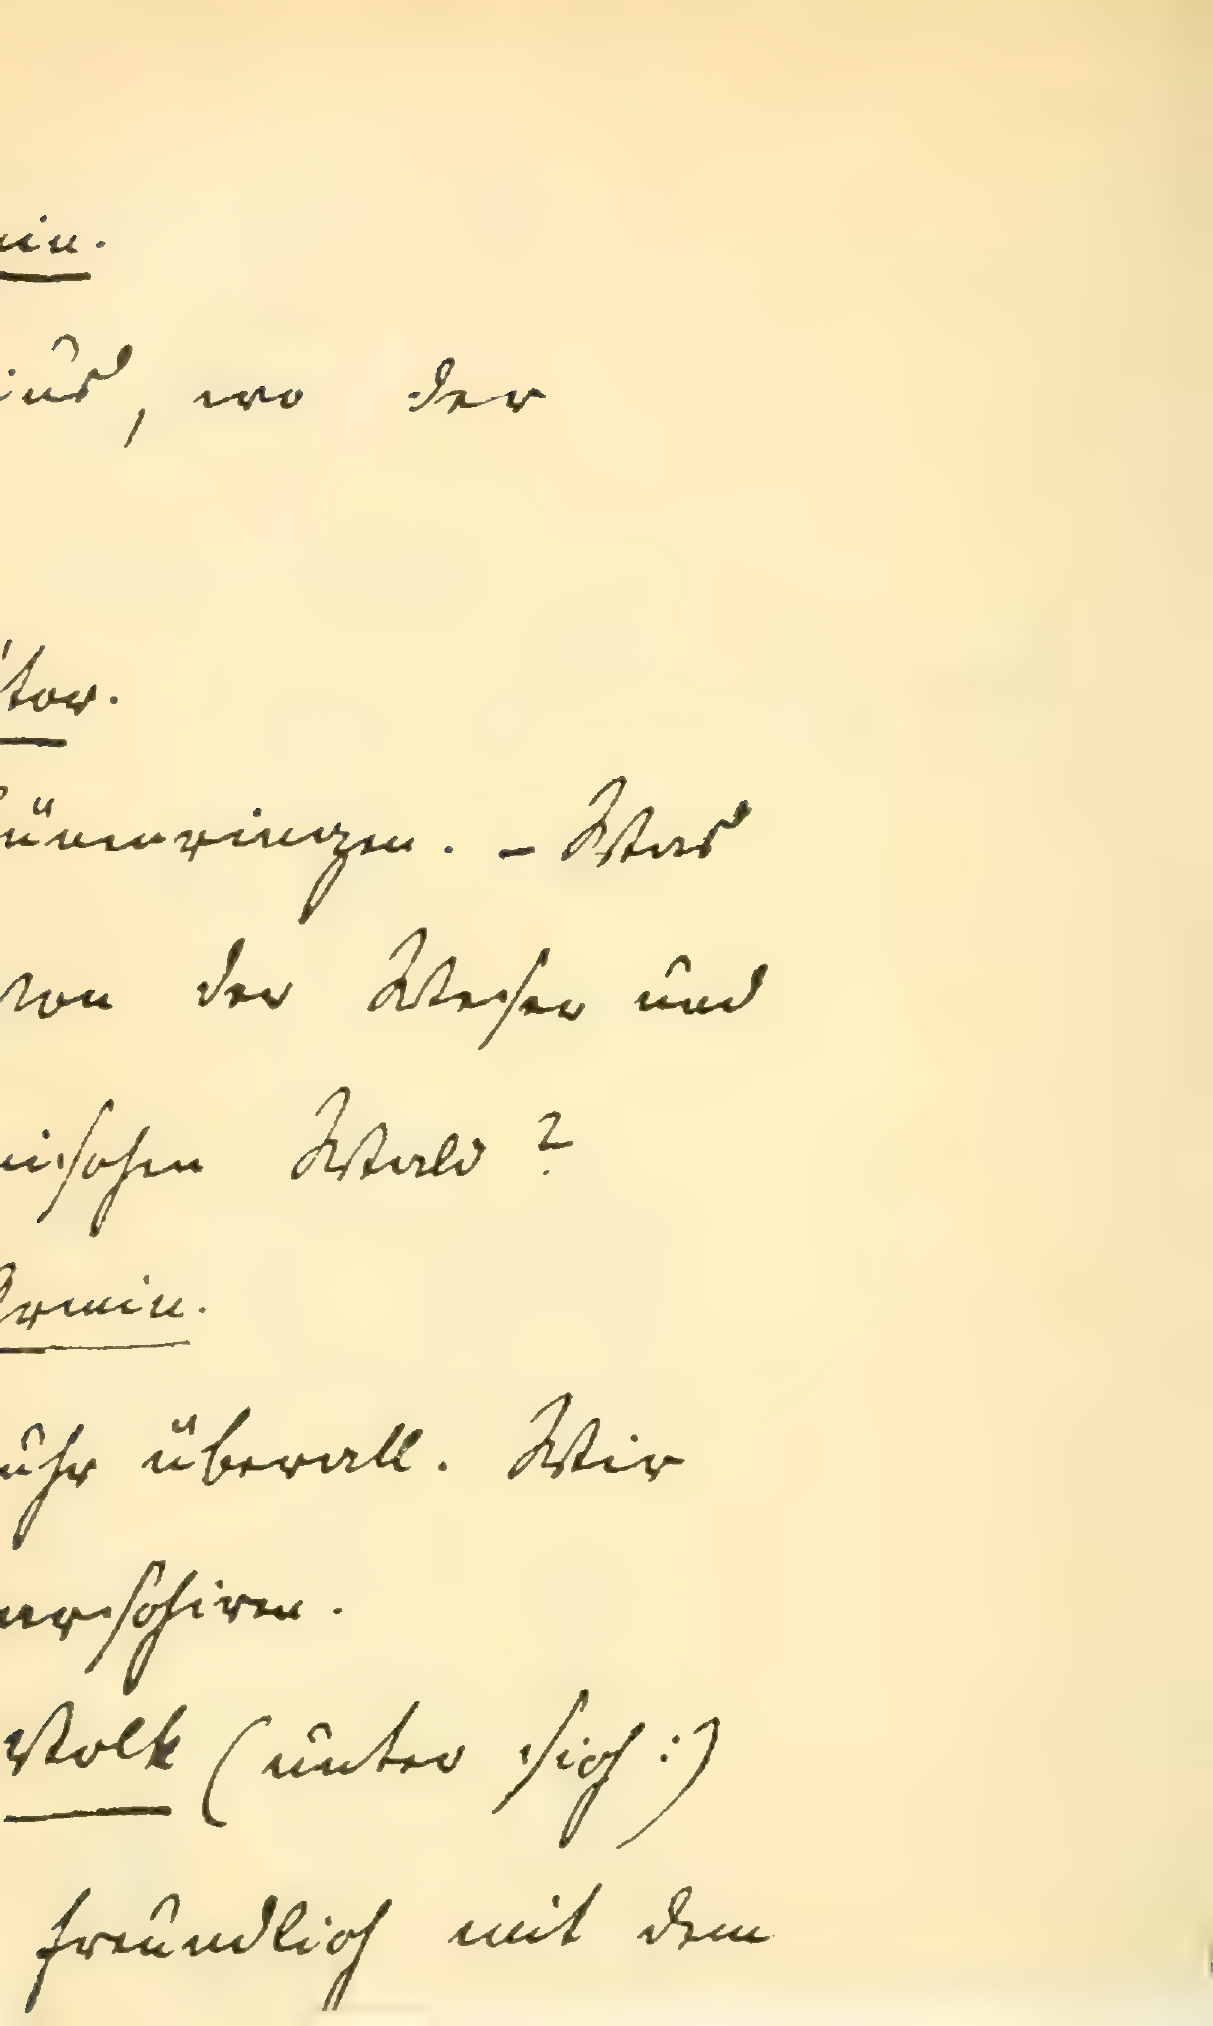 min.
ius, wo der
tor.
Hünenringen. - Was
von der Weser und
nischen Wald?
Armin.
uhr überall. Wir
marschiren.
Volk (unter sich:)
freundlich mit dem